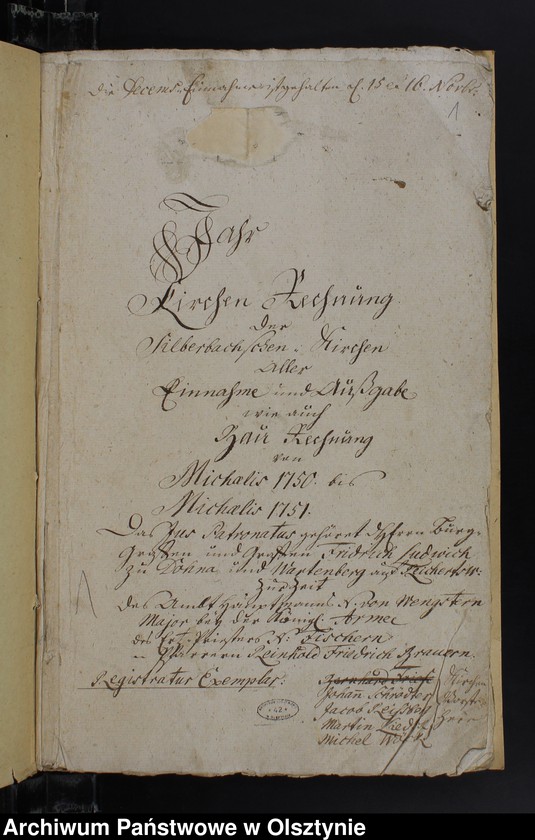 Die Decems Einnahme ist gehalten d. 15 et 16. Novbr.
1
Jahr
Kirchen Rechnung
Der
Silberbachschen Kirchen
Aller
Einnahme und Außgabe
wie auch
Bau Rechnung
von
Michalis 1750. bis
Michalis 1751.
Das Jus Patronatus gehöret Herrn Burg-
Graffen und Graffen Fridrich Ludwich
zu Dohna und Wartenberg auf Reichertsw.
Zur Zeit
Des Ambt Hauptmanns H. von Wengstern
Major bey der Königl. Armee
des Ertz Priesters H. Fischern
Pfarrern Reinhold Friedrich Brauern.
Registratur Exemplar.
Johann Schrödter
Jacob
Martin
Michel
Kirchen
Vorste
her
Archiwum Państwowe w Olsztynie